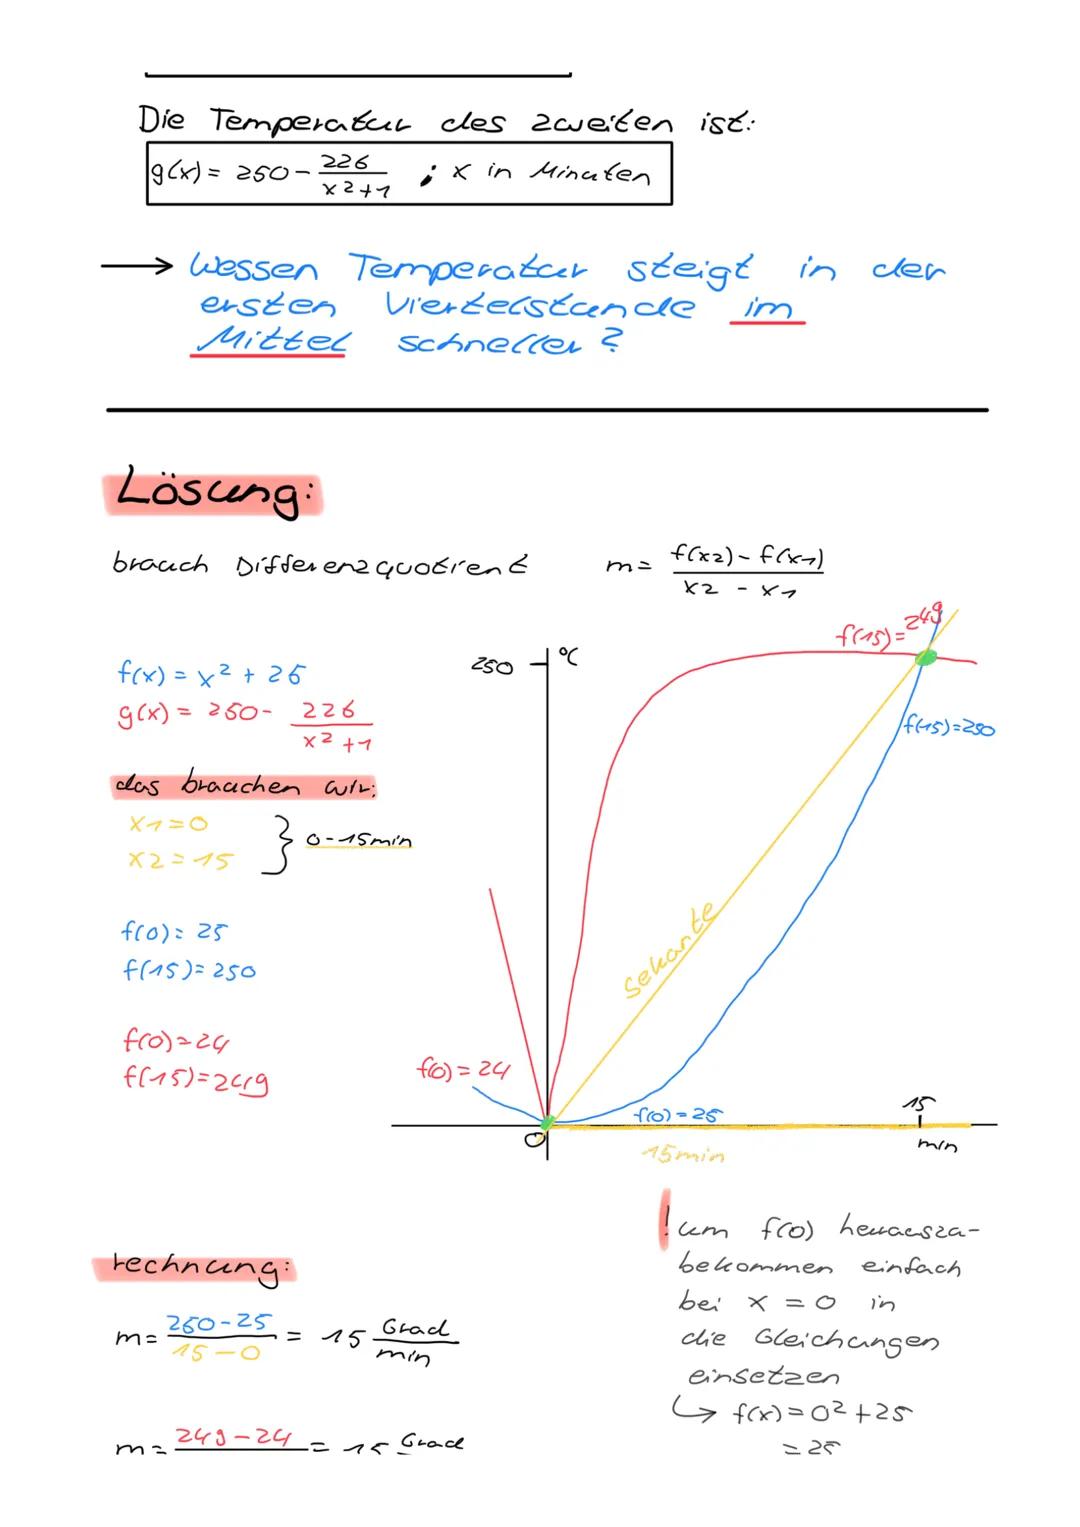 Die Temperatur des zweiten ist:
g(x) = 250 - 226/(x²+1) ; x in Minuten
→ Wessen Temperatur steigt in der
ersten Viertelstunde im
Mittel schneller?
Lösung:
brauch Differenzquotient m = (f(x2) - f(x1))/(x2 - x1)
f(x) = x² + 25
g(x) = 250 - 226/(x²+1)
das brauchen wir:
x1 = 0
x2 = 15
} 0-15min
f(0) = 25
f(15) = 250
f(0) = 24
f(15) = 249
250
°C
f(15) = 249
f(15) = 250
sekante
f(0) = 24
f(0) = 25
0
15
min
15min
rechnung:
m = (250-25)/(15-0) = 15 Grad/min
m = 249-24 = 15 Grad
! um f(0) herauszu-
bekommen einfach
bei x = 0 in
die Gleichungen
einsetzen
↳ f(x) = 0² + 25
= 25